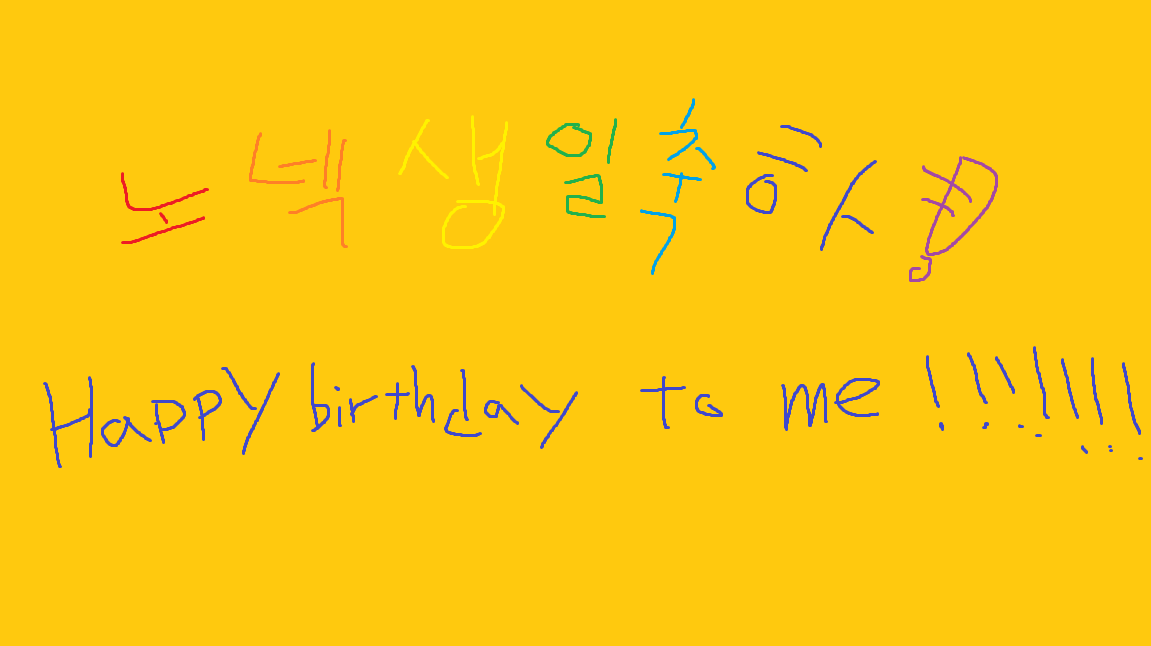 노넥생일축하!
Happy birthday to me !!!!!!!